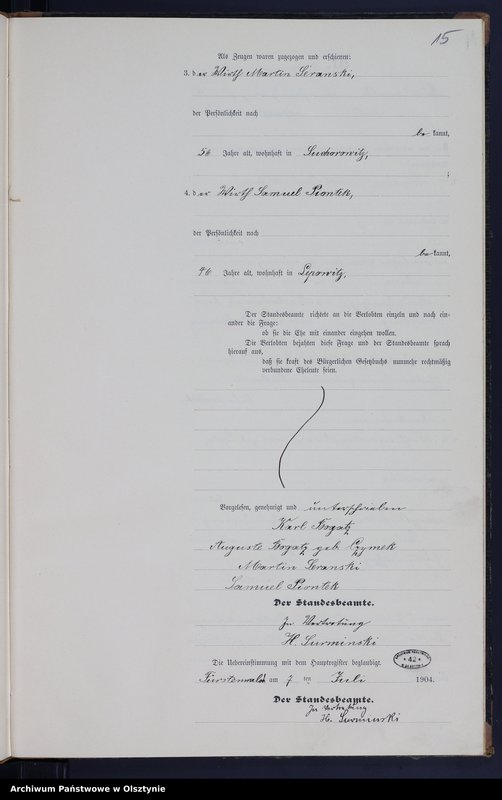 15
Als Zeugen waren zugezogen und erschienen:
3. der Wirth Martin Seranski,
der Persönlichkeit nach
bekannt,
56 Jahre alt, wohnhaft in Suchorowitz,
;
4. der Wirth Samuel Piontek,
der Persönlichkeit nach
bekannt,
46 Jahre alt, wohnhaft in Lipowitz,
Der Standesbeamte richtete an die Verlobten einzeln und nach ein-
ander die Frage:
ob sie die Ehe mit einander eingehen wollen.
Die Verlobten bejahten diese Frage und der Standesbeamte sprach
hierauf aus,
daß sie kraft des Bürgerlichen Gesetzbuchs nunmehr rechtmäßig
verbundene Eheleute seien.
Vorgelesen, genehmigt und unterschrieben
Karl Bogatz
Auguste Bogatz geb. Czymek
Martin Seranski
Samuel Piontek
Der Standesbeamte.
In Vertretung
H. Surminski
Die Uebereinstimmung mit dem Hauptregister beglaubigt.
Fürstenwalde am 7 ten Juli 1904.
42
Der Standesbeamte.
In Vertretung
H. Surminski
Archiwum Państwowe w Olsztynie